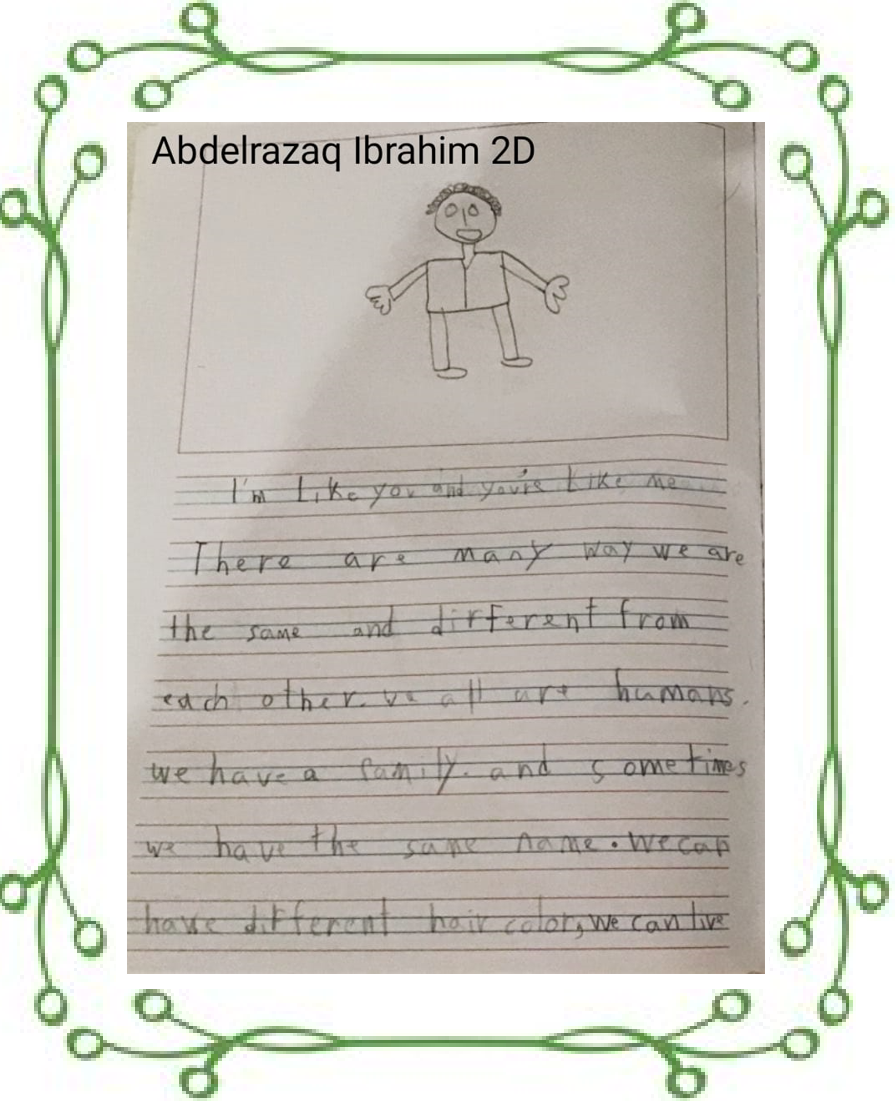 Abdelrazaq Ibrahim 2D
I'm Like you and you're Like me
There are many way we are
the same and different from
each other. we all are humans.
we have a family. and sometimes
we have the same name. We can
have different hair color, we can live